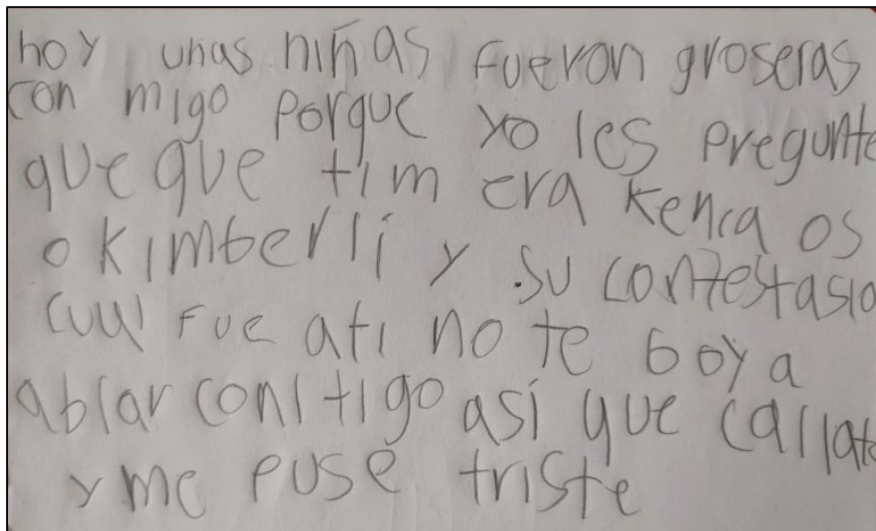 hoy unas niñas fueron groseras
con migo porque yo les pregunte
que que tim era kenia os
o kimberlí y su contestasio
cual fue ati no te boy a
ablar contigo así que callate
y me puse triste